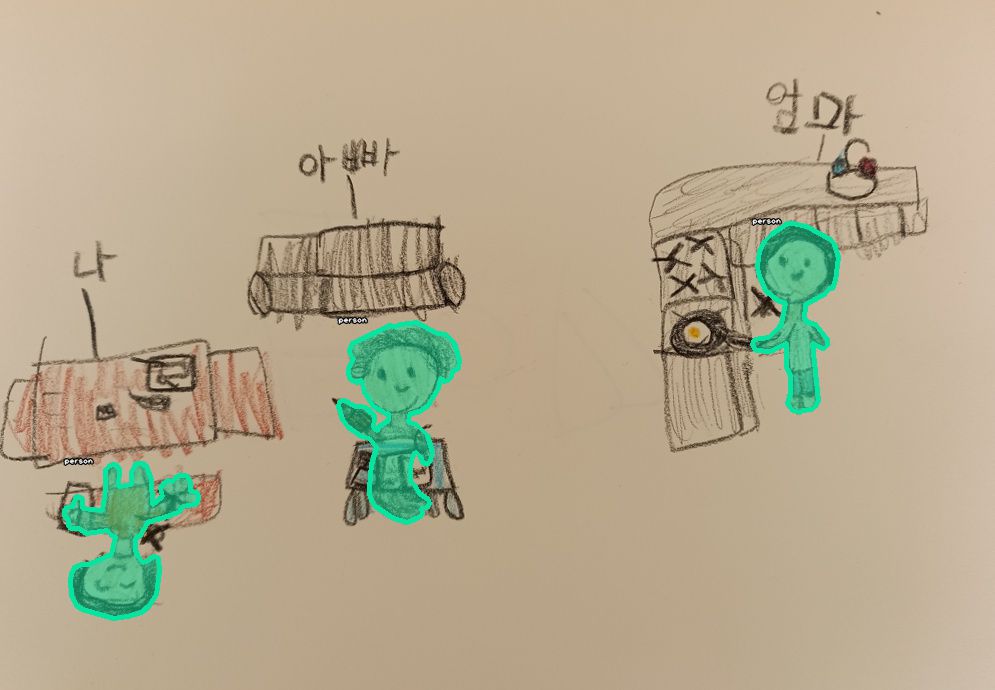 엄마
아빠
나
person
person
person